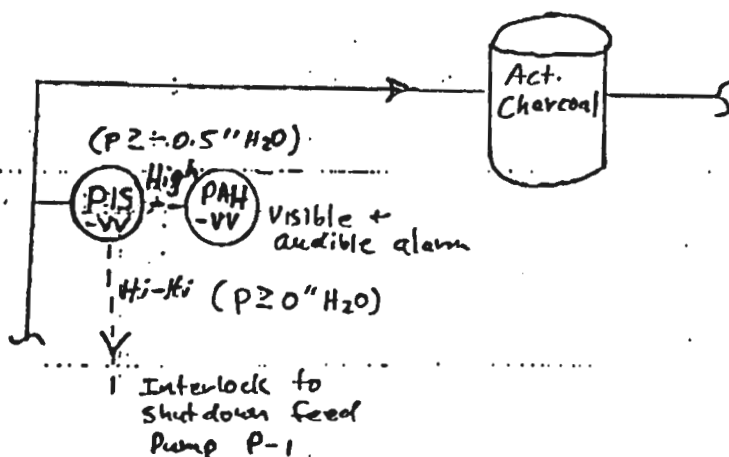 Act.
Charcoal
(P ≥ -0.5" H2O)
High
PIS
-VV
PAH
-VV
Visible +
audible alarm
Hi-Hi (P ≥ 0" H2O)
Interlock to
shutdown feed
Pump P-1